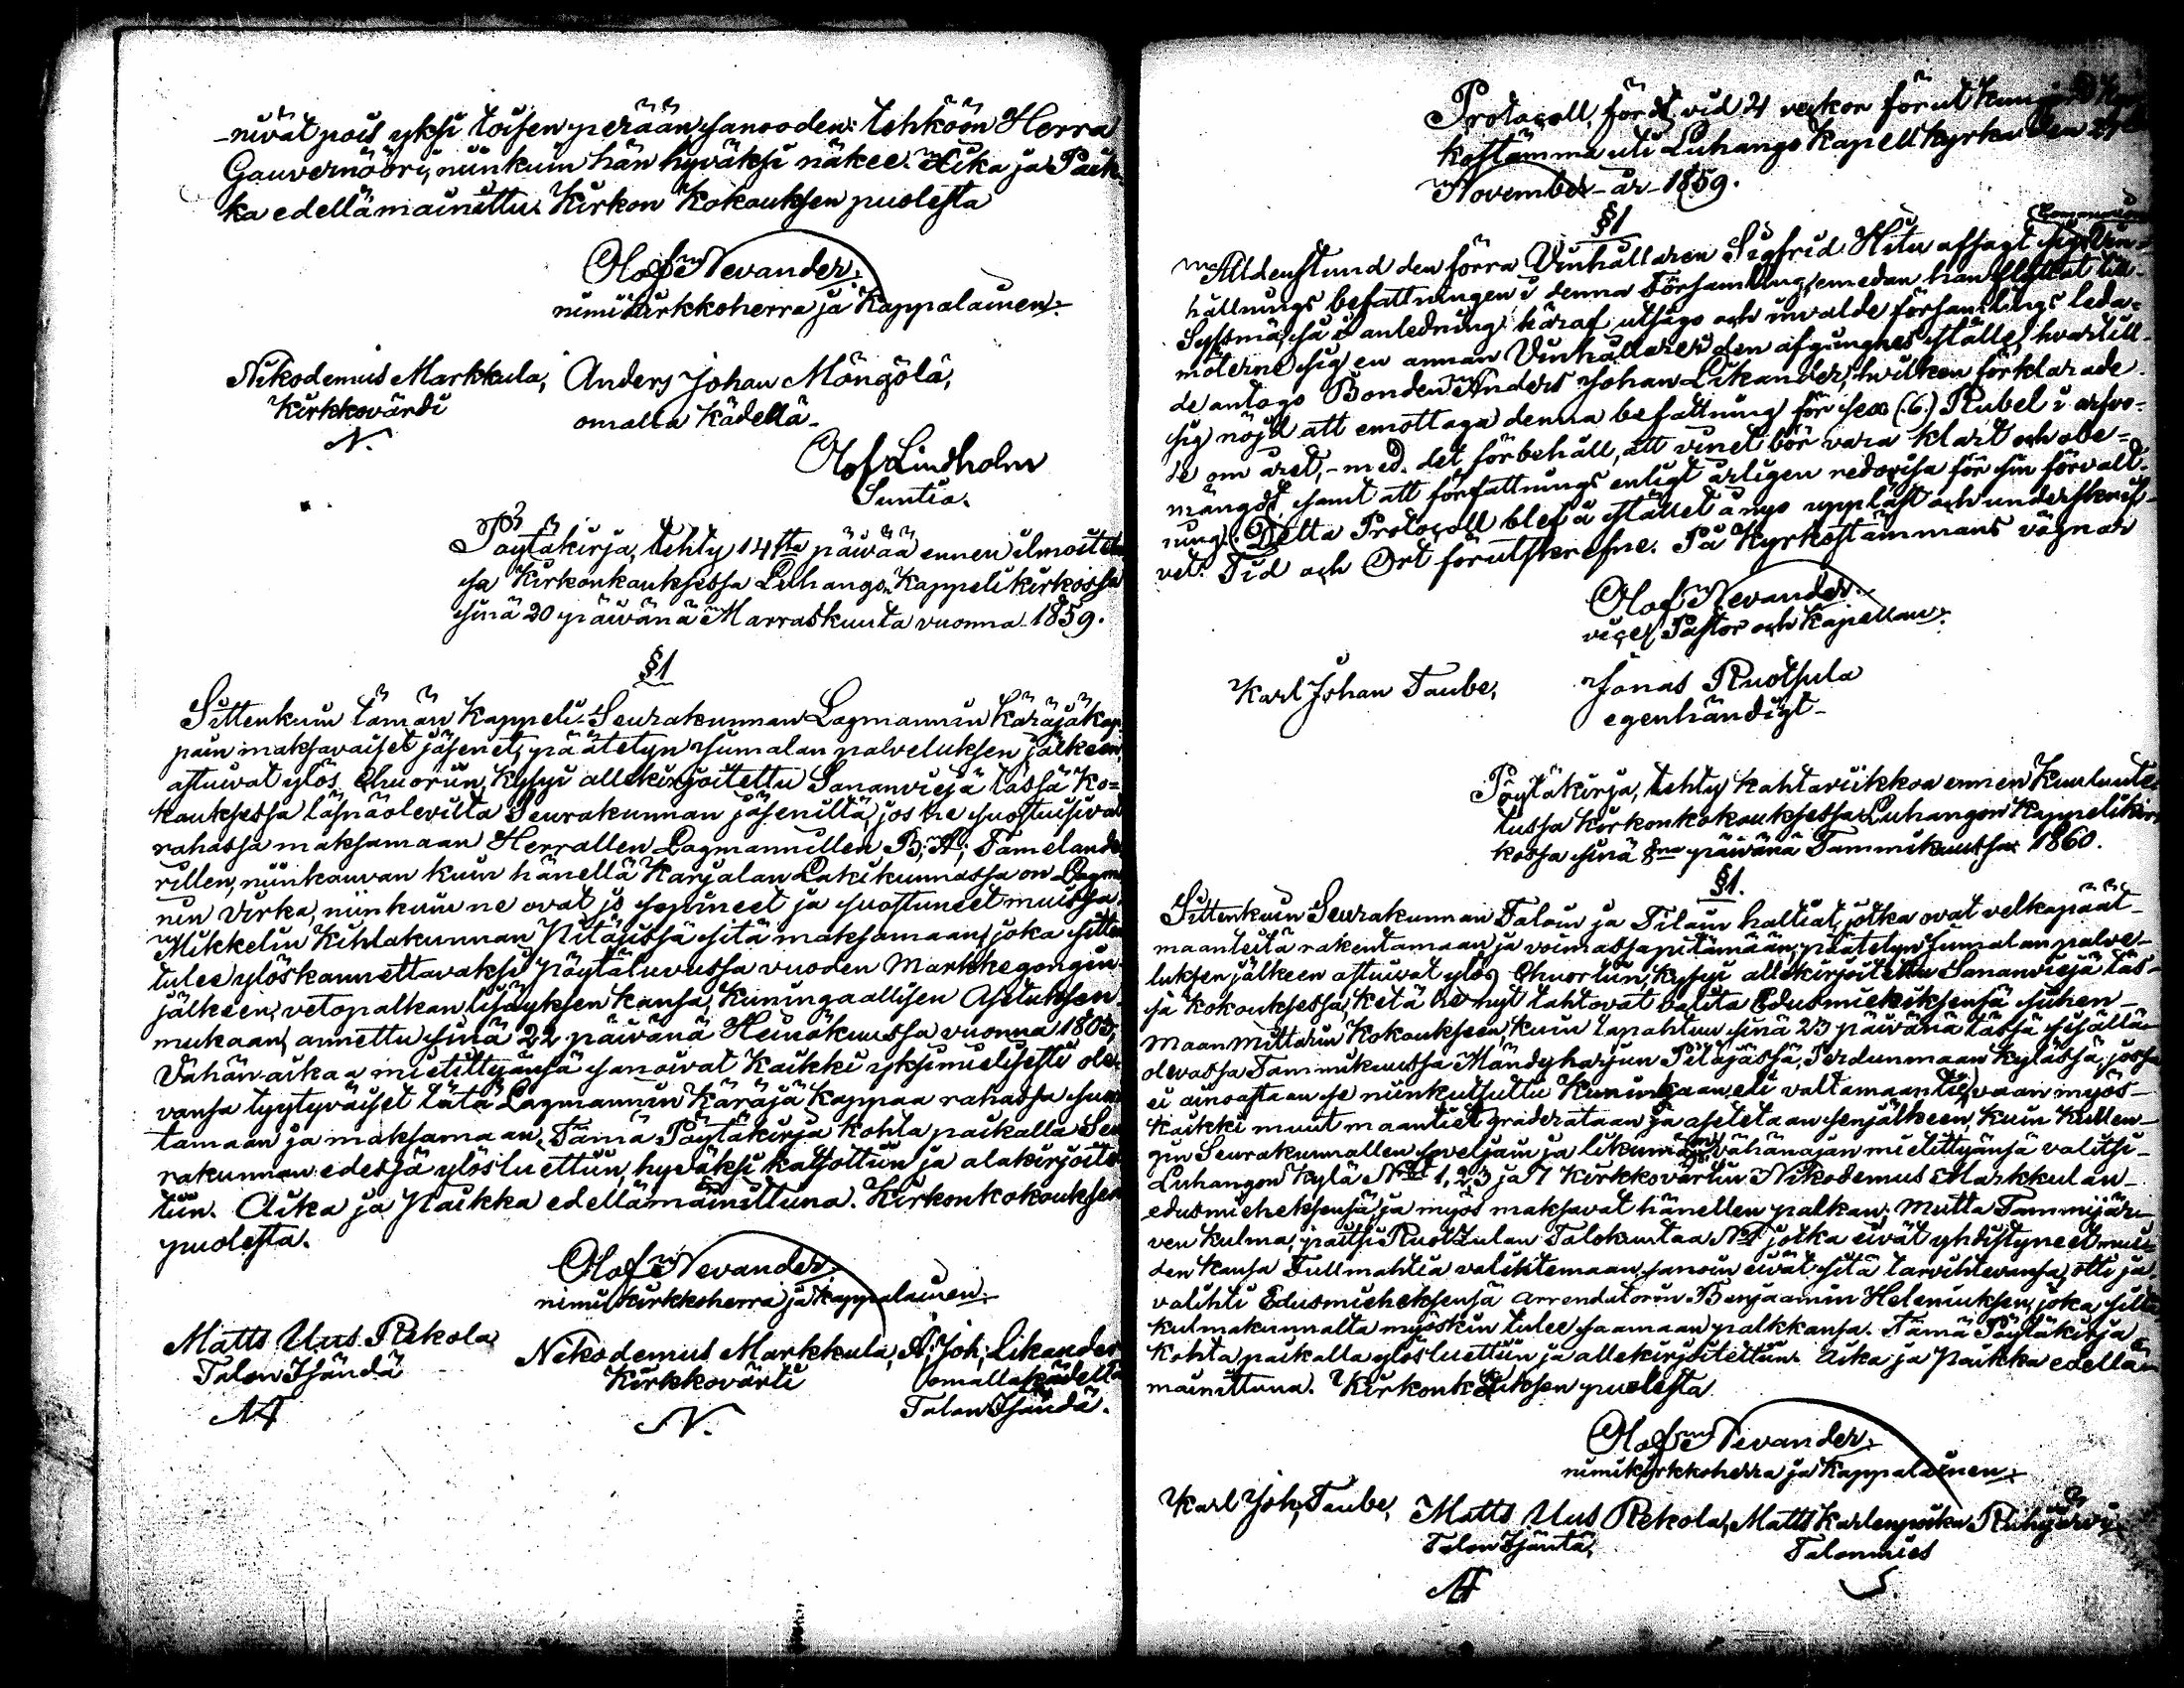 -nivät pois yksi toisen perään, sanooden: tehköön Herra
Gauvernööri, niinkuin hän hyväksi näkee. Aika ja Paik-
ka edellämainittu. Kirkon Kokouksen puolesta
Olof Nevander,
nimikirkkoherra ja Kappalainen.
Nikodemus Markkula, Anders Johan Möngölä,
Kirkkovärdi omalla Kädellä.
N.
Olof Lindholm
Suntio.
Pöytäkirja, tehty 14tta päivää ennen ilmoitetu-
sa Kirkonkouksessa Luhangon Kappelikirkossa
sinä 20 päivänä Marraskuuta vuonna 1859.
§1
Sittenkuin tämän Kappeli-Seurakunnan Lagmannin Käräjäkap-
pain maksavaiset jäsenet, päätetyn Jumalan palveluksen jälkeen,
astuivat ylös Chuoriin, kysyi allekirjoitettu Sananviejä tässä Ko-
kouksessa läsnäolevilta Seurakunnan jäseniltä, jos he suostuisivat
rahassa maksamaan Herrallen Lagmannillen B: A: Tamelande
rillen, niinkauvan kuin hänellä Karjalan Lakikunnassa on Lagman
nin Virka, niinkuin ne ovat jo sopineet ja suostuneet muissa
Mikkelin Kihlakunnan Pitäjissä sitä maksamaan, joka sitten
tulee ylöskannettavaksi pöytäluvussa vuoden Markkegongin
jälkeen, vetopalkan lisäyksen kansa, Kuningaallisen Asetuksen
mukaan, annettu sinä 22 päivänä Heinäkuussa vuonna 1803;
Vähän aikaa mietittyänsä sanoivat Kaikki yksimielisesti ole-
vansa tyytyväiset tätä Lagmannin Käräjä Kappaa rahassa suos
tamaan ja maksamaan. Tämä Pöytäkirja Kohta paikalla Seu
rakunnan edessä ylösluettiin, hyväksi katsottiin ja alakirjoitet
tiin. Aika ja Paikka edellämainittuna. Kirkonkokouksen
puolesta.
Olof Nevander,
nimikirkkoherra ja Kappalainen.
Matts Uus Rekola Nikodemus Markkula, A: Joh: Likander
Talon Isändä Kirkkovärti omalla kädellä
M N. Talon Isändä.
Protocoll, fördt vid 2 veckor förut
kostämma uti Luhango Kapellkyrka den 27
November år 1859.
§1
Alldenstund den förra Vinhållaren Sigfrid Hitu afsagt sig Vin-
hållnings befattningen i denna Församling, emedan han flyttat till
Sysmä, så i anledning häraf utsågo och invalde församlings leda-
möterne sig en annan Vinhållare i den afgångnes ställe, hvartill
de antogo Bonden Anders Johan Likander, hvilken förklarade
sig nöjd att emottaga denna befattning för sex (:6:) Rubel i arfvo-
de om året, - med det förbehåll, att vinet bör vara klart och obe-
mängdt, samt att författnings enligt årligen redovisa för sin förvalt-
ning. Detta Protocoll blef å stället å nyo uppläst och underskrif-
vet. Tid och Ort förutskrefne. På Kyrkostämmans vägnar
Olof Nevander
vice Pastor och Kapellan.
Karl Johan Taube, Jonas Ruotsula
egenhändigt
Pöytäkirja, tehty kahtaviikkoa ennen Kuuluute-
tussa Kirkonkokouksessa Luhangon Kappelikir-
kossa sinä 8na päivänä Tammikuussa 1860.
§1.
Sittenkuin Seurakunnan Taloin ja Tilain haltiat, jotka ovat velkapäät
maanteitä rakentamaan ja voimassapitämään, päätetyn Jumalan palve-
luksen jälkeen astuivat ylös Chuoriin, kysyi allekirjoitettu Sananviejä täs-
sä Kokouksessa, ketä he nyt tahtovat valita Edusmieheksensä siihen
Maanmittarin Kokoukseen, kuin tapahtuu sinä 23 päivänä tässä sisällä
olevassa Tammikuussa Mändyharjun Pitäjässä, Perdunmaan Kylässä, jossa
ei ainoastaan se niinkutsuttu Kuninkaan eli valtamaantie, vaan myös
Kaikki muut maantiet graderataan ja asetetaan senjälkeen, kuin Kullen-
gin Seurakunnallen soveljain ja likin; vähänajan mietittyänsä valitsi
Luhangon Kylä No 1, 2, 3 ja 7 Kirkkovärtin Nikodemus Markkulan
edusmieheksensä, ja myös maksavat hänellen palkan. Mutta Tammijär-
ven kulma, paitsi Ruotzulan Talokuntaa No 1, jotka eivät yhdistyneet mui-
den kansa Fullmahtia valihtemaan, sanoin eivät sitä tarvihtevansa, otti ja
valihti Edusmieheksensä Arrendatorin Benjaamin Heleniuksen, joka siltä
kulmakunnalta myöskin tulee saamaan palkkansa. Tämä Pöytäkirja
Kohta paikalla ylösluettiin ja allekirjoitettiin. Aika ja Paikka edellä
mainittuna. Kirkonkokouksen puolesta
Olof Nevander,
nimikirkkoherra ja Kappalainen.
Karl Joh: Taube, Matts Uus Rekola, Matts Karlenpoika Riihijärvi
Talon Isäntä, Talonmies
M